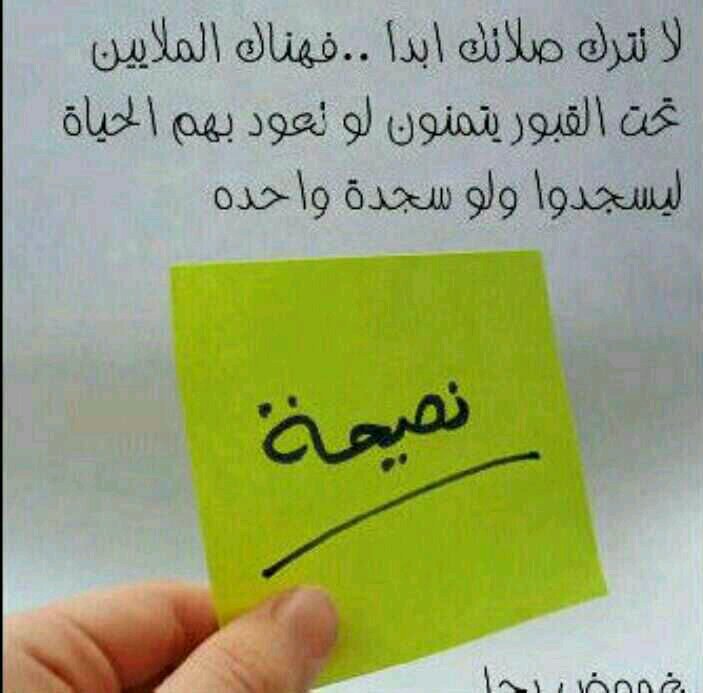 لا تترك صلاتك ابداً ..فهناك الملايين
تحت القبور يتمنون لو تعود بهم الحياة
ليسجدوا ولو سجدة واحده
نصيحة